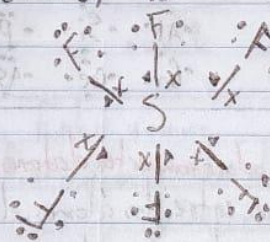 F F F
x x x
S
x x x
F F F